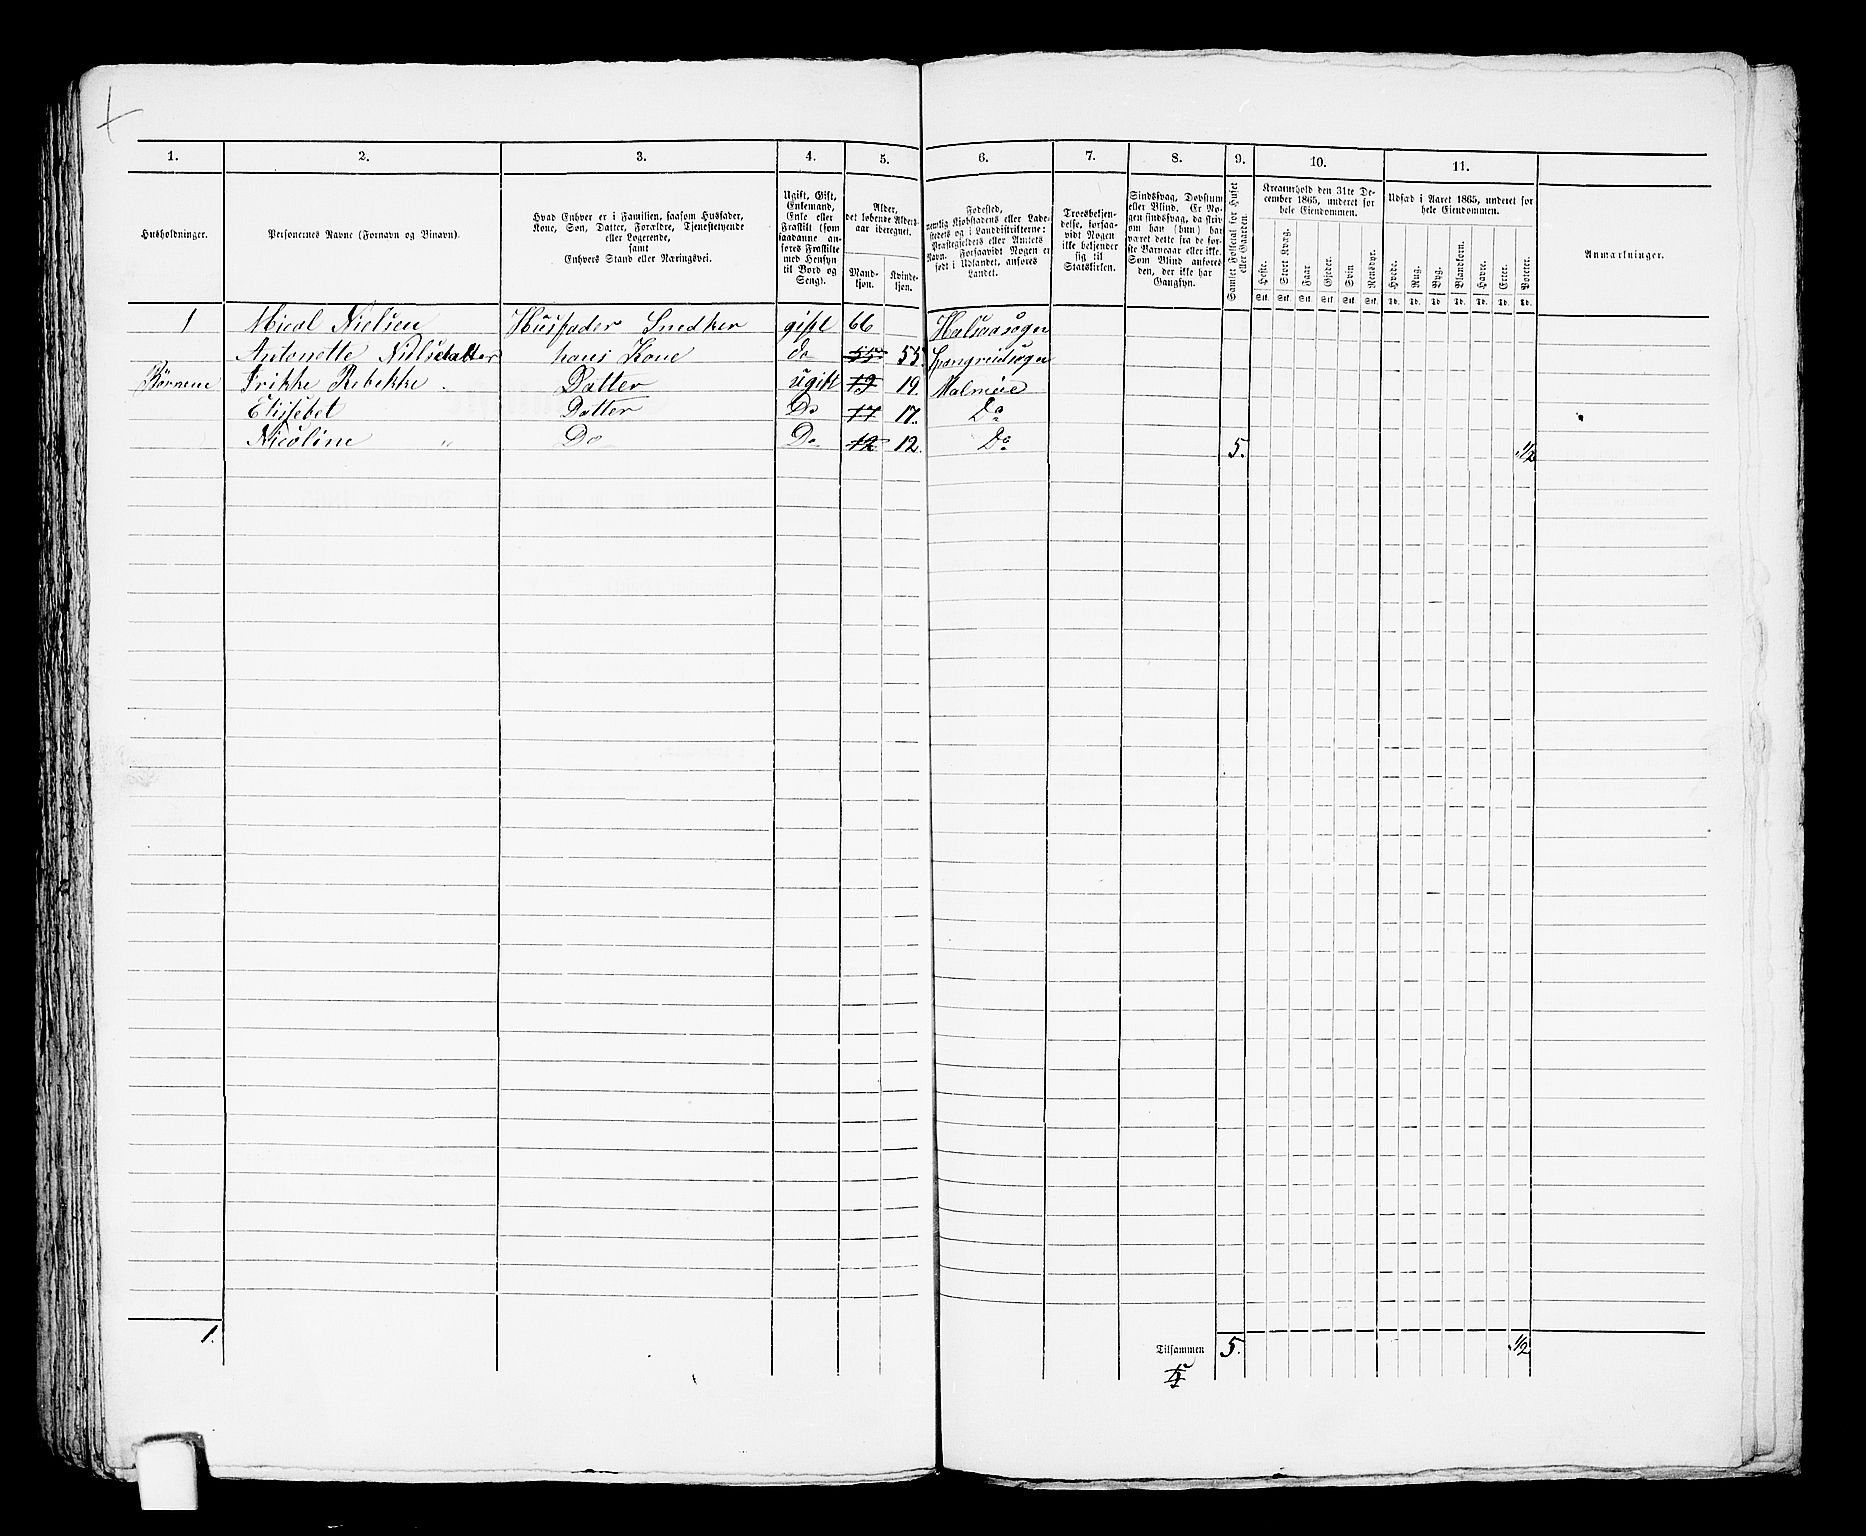 1. 2. 3. 4. 5. 6. 7. 8. 9. 10. 11.
Husholdninger.
Personernes Navne (Fornavn og Binavn).
Hvad Enhver er i Familien, saasom Husfader,
Kone, Søn, Datter, Forældre, Tjenestetyende
eller Logerende,
samt
Enhvers Stand eller Næringsvei.
Ugift, Gift,
Enkemand,
Enke eller
Fraskilt (som
saadanne an-
føres Fraskilte
med Hensyn
til Bord og
Seng).
Alder,
det løbende Alders-
aar iberegnet.
Mand-
kjøn.
Kvinde-
kjøn.
Fødested,
nemlig Kjøbstadens eller Lade-
stedets og i Landdistrikterne:
Præstegjeldets eller Amtets
Navn. Forsaavidt Nogen er
født i Udlandet, anføres
Landet.
Troesbekjen-
delse, forsaa-
vidt Nogen
ikke bekjender
sig til
Statskirken.
Sindssvag, Døvstum
eller Blind. Er No-
gen sindssvag, da skriv
om han (hun) har
været dette fra de før-
ste Barneaar eller ikke.
Som Blind anføres
den, der ikke har
Gangsyn.
Samlet Folketal for Huset
eller Gaarden.
Kreaturhold den 31te De-
cember 1865, underet for
hele Eiendommen.
Heste. Stort Kvæg. Faar. Gjeder. Svin Rensdyr.
Stk. Stk. Stk. Stk. Stk. Stk.
Udsæd i Aaret 1865, underet for
hele Eiendommen.
Hvede. Rug. Byg. Blandkorn. Havre. Erter. Poteter.
Td. Td. Td. Td. Td. Td. Td.
Anmærkninger.
1 Mical Nielsen Husfader Snedker gift 66 Halsaa sogn
Antonette Nielsdatter hans Kone do 55 55 Spangreidsogn
Börnene Frikke Rebekke Datter ugift 19 19. Malmöe
Elisebet Datter Do 17 17. Do
Nicoline " Do Do 12 12. Do 5. 1/2
1. Tilsammen 5. 1/2